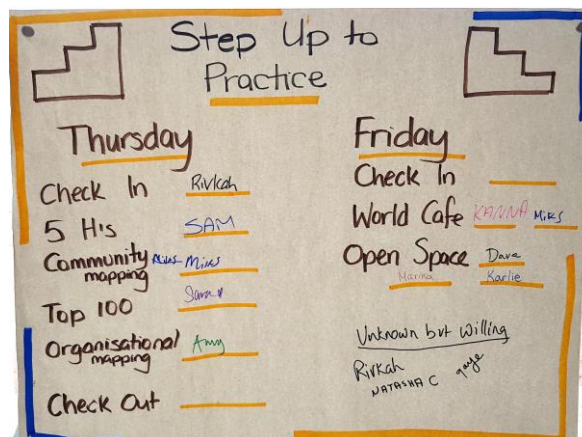 Step Up to
Practice
Thursday
Check In Rivkah
5 His SAM
Community Miks
mapping
Top 100
Organisational Amy
mapping
Check Out
Friday
Check In
World Cafe KANNA Miks
Open Space Dave
Marina Karlie
Unknown but Willing
Rivkah
NATASHA C